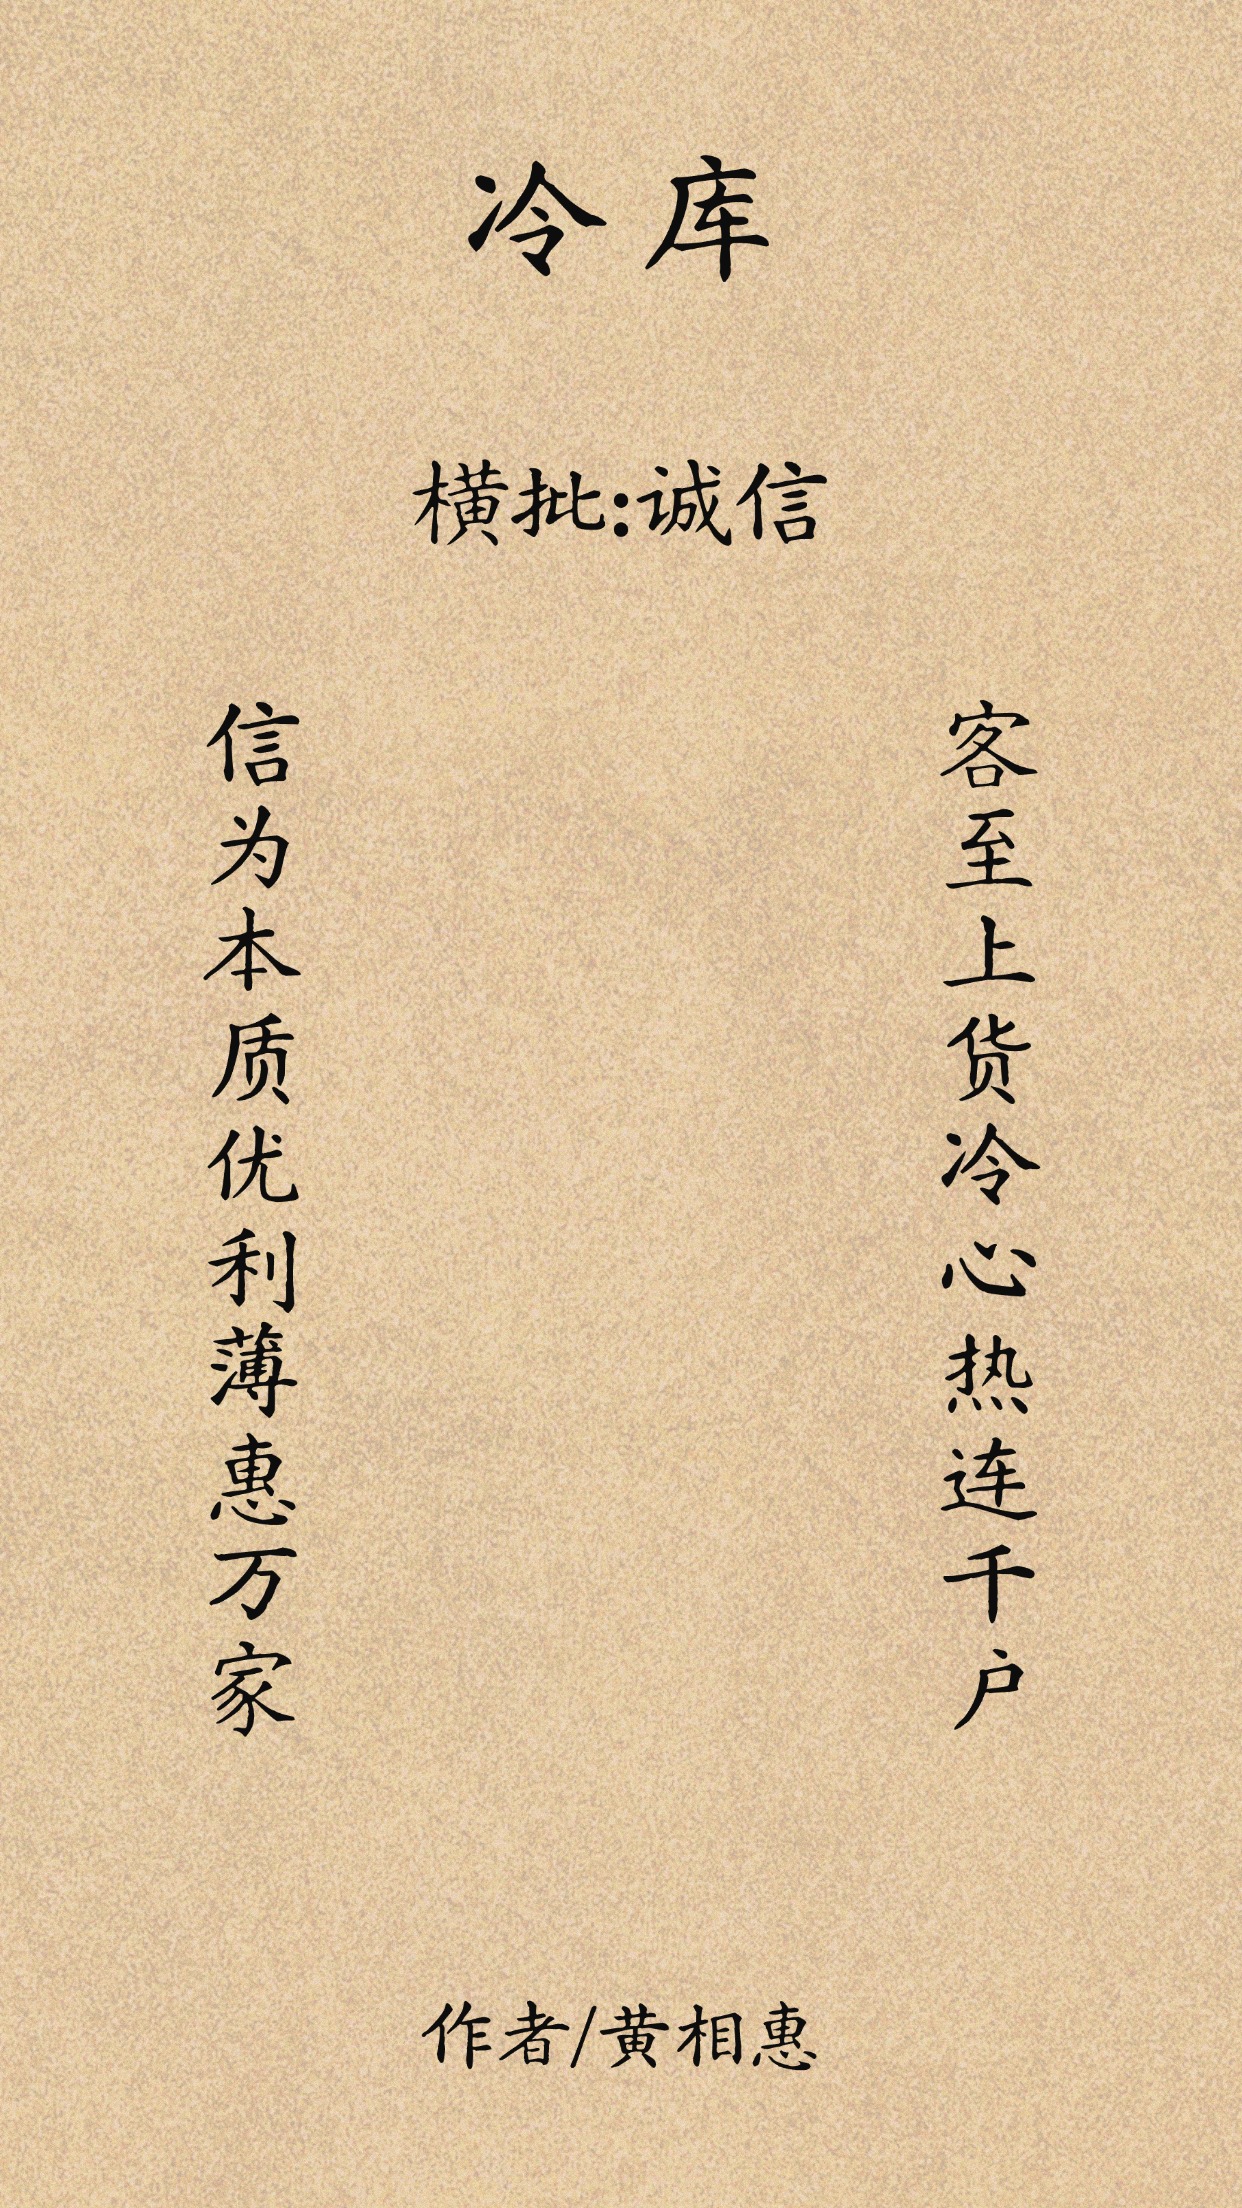 冷库
横批:诚信
客至上货冷心热连千户
信为本质优利薄惠万家
作者/黄相惠